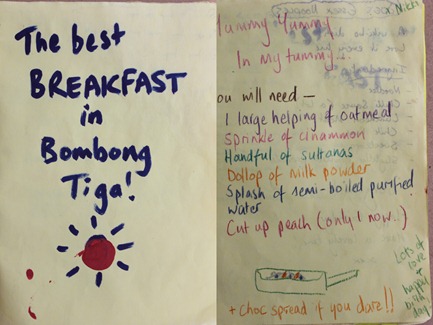 The best
BREAKFAST
in
Bombong
Tiga!
Yummy Yummy
In my tummy..
ou will need —
1 large helping of oatmeal
Sprinkle of cinammon
Handful of sultanas
Dollop of milk powder
Splash of semi-boiled purified
water
Cut up peach (only 1 now..)
+ choc spread if you dare!!
Lots of
love
+
happy
birth
day
Nikki